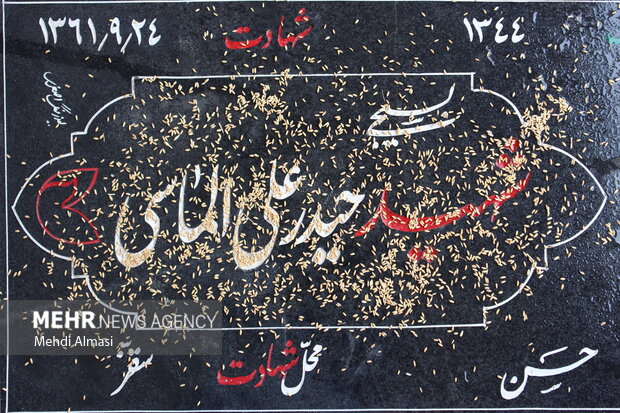 ۱۳۴۴ شهادت ۱۳۶۱٫۹٫۲۴
بسیجی
شهید حیدرعلی الماسی
MEHR NEWS AGENCY
Mehdi Almasi
حسن محلّ شهادت سقّز